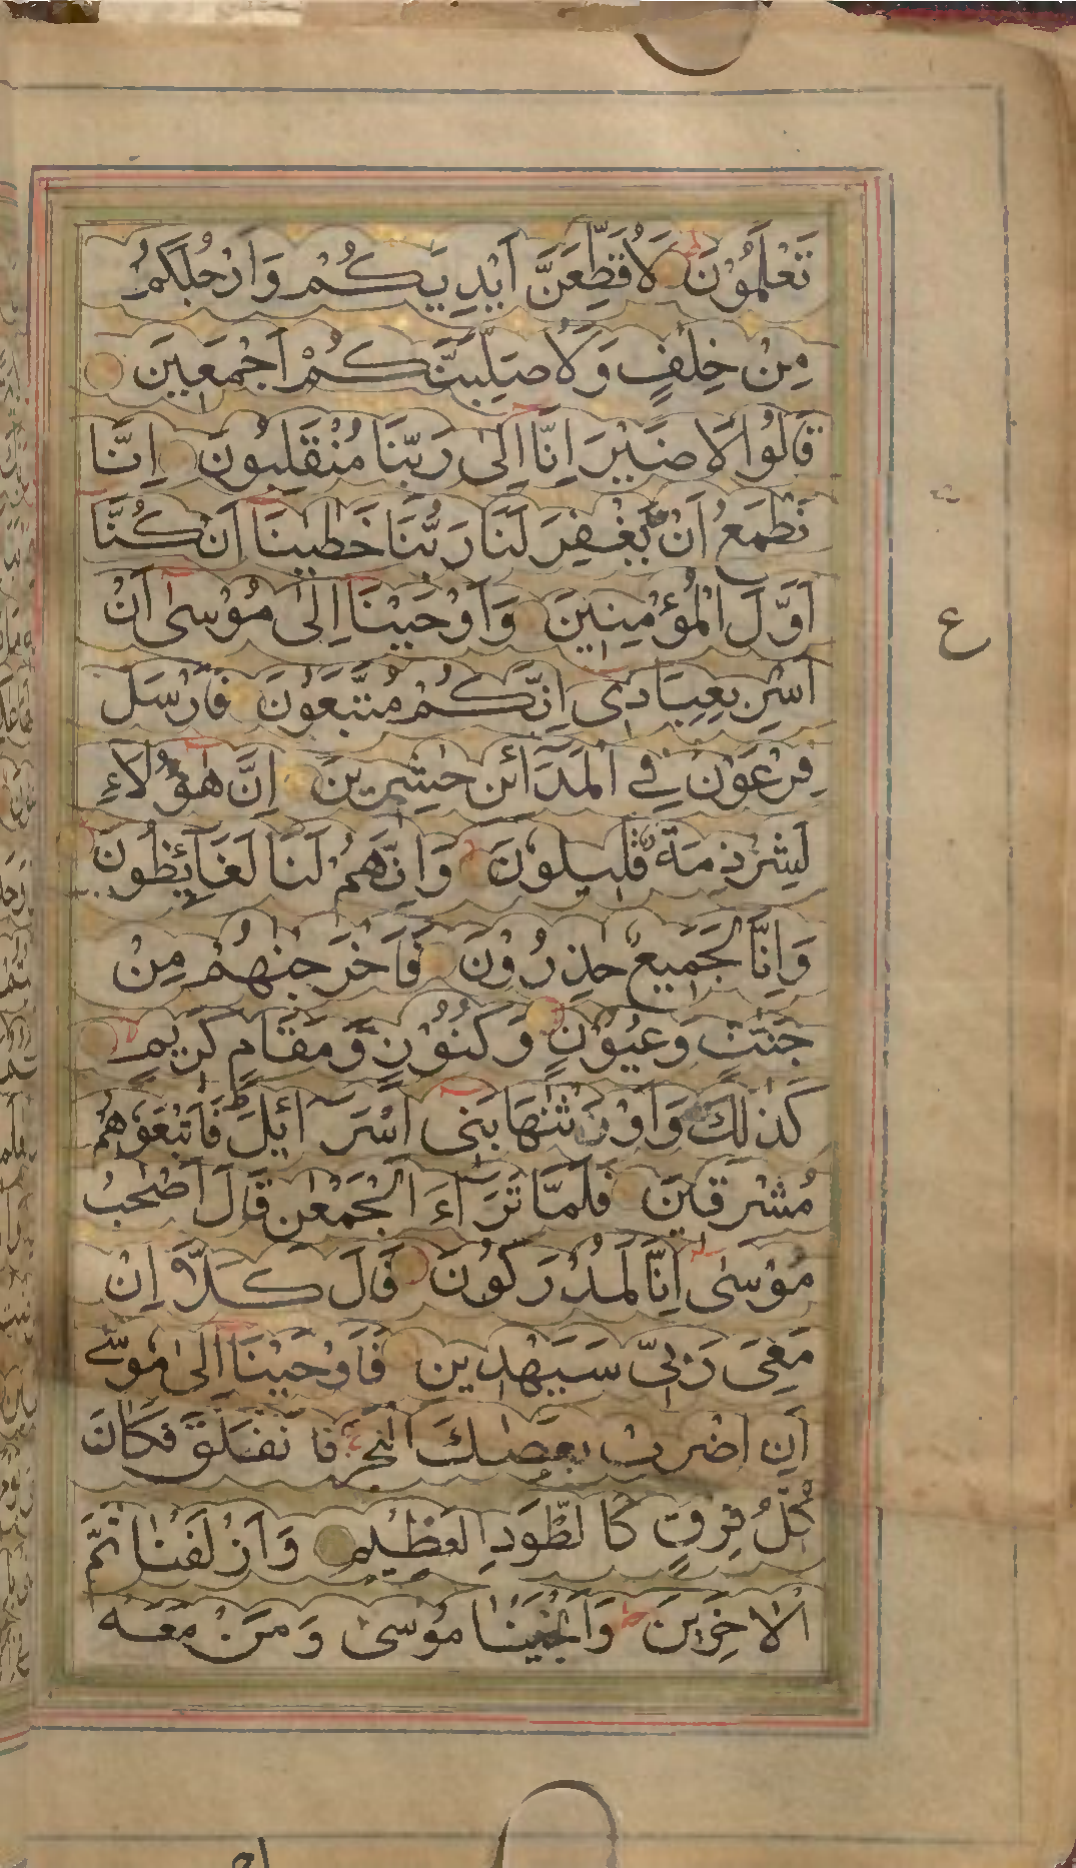 تَعْلَمُوْنَ لَاُقَطِّعَنَّ اَيْدِيَكُمْ وَاَرْجُلَكُمْ
مِنْ خِلٰفٍ وَلَاُصَلِّبَنَّكُمْ اَجْمَعِيْنَ
قَالُوْا لَا ضَيْرَ اِنَّا اِلٰى رَبِّنَا مُنْقَلِبُوْنَ اِنَّا
نَطْمَعُ اَنْ يَغْفِرَ لَنَا رَبُّنَا خَطٰيٰنَا اَنْ كُنَّا
اَوَّلَ الْمُؤْمِنِيْنَ وَاَوْحَيْنَا اِلٰى مُوْسٰى اَنْ
اَسْرِ بِعِبَادِى اِنَّكُمْ مُتَّبَعُوْنَ فَاَرْسَلَ
فِرْعَوْنُ فِى الْمَدَآئِنِ حٰشِرِيْنَ اِنَّ هٰؤُلَاءِ
لَشِرْذِمَةٌ قَلِيْلُوْنَ وَاِنَّهُمْ لَنَا لَغَآئِظُوْنَ
وَاِنَّا لَجَمِيْعٌ حٰذِرُوْنَ فَاَخْرَجْنٰهُمْ مِنْ
جَنّٰتٍ وَعُيُوْنٍ وَكُنُوْزٍ وَّمَقَامٍ كَرِيْمٍ
كَذٰلِكَ وَاَوْرَثْنٰهَا بَنِى اِسْرَآئِلَ فَاَتْبَعُوْهُمْ
مُشْرِقِيْنَ فَلَمَّا تَرَآءَ الْجَمْعٰنِ قَالَ اَصْحٰبُ
مُوْسٰى اِنَّا لَمُدْرَكُوْنَ قَالَ كَلَّا اِنَّ
مَعِىَ رَبِّى سَيَهْدِيْنِ فَاَوْحَيْنَا اِلٰى مُوْسٰى
اَنِ اضْرِبْ بِعَصٰكَ الْبَحْرَ فَانْفَلَقَ فَكَانَ
كُلُّ فِرْقٍ كَالطَّوْدِ الْعَظِيْمِ وَاَزْلَفْنَا ثَمَّ
الْاٰخَرِيْنَ وَاَنْجَيْنَا مُوْسٰى وَمَنْ مَعَهٗ
ع